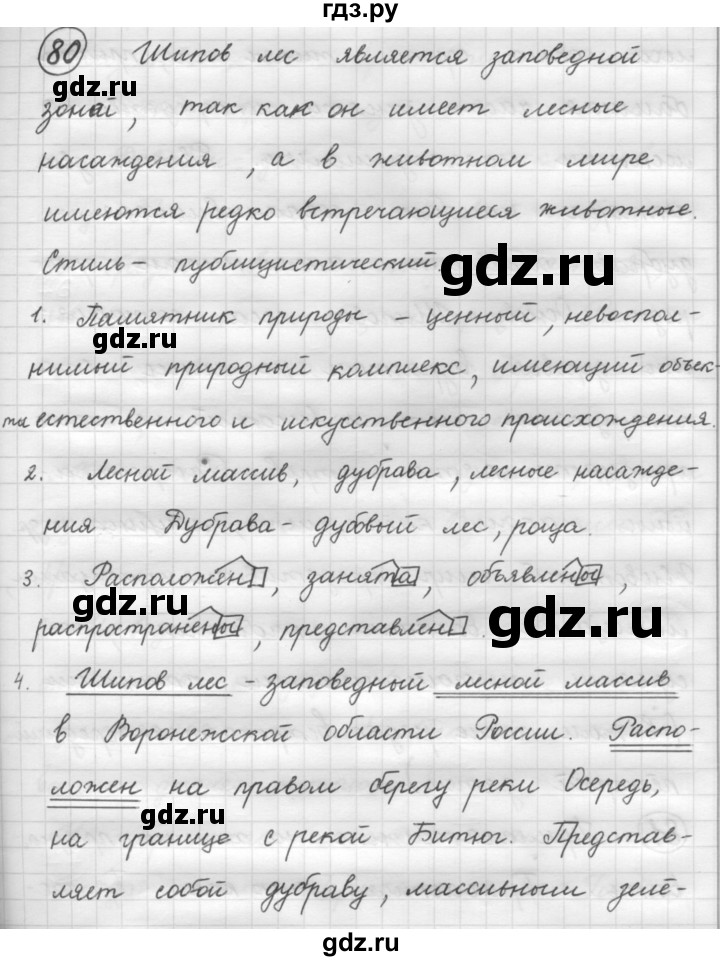 гдз.ру
80 Шипов лес является заповедной
gdz.ru
зоной, так как он имеет лесные
насаждения, а в животном мире
имеются редко встречающиеся животные.
Стиль – публицистический.
gdz.ru
1. Памятник природы – ценный, невоспол-
gdz.ru
нимый природный комплекс, имеющий объек-
ты естественного и искусственного происхождения.
2. Лесной массив, дубрава, лесные насажде-
ния Дубрава – дубовый лес, роща.
3. Расположен, занята, объявлены,
gdz.ru
gdz.ru
распространены, представлен.
4. Шипов лес – заповедный лесной массив
в Воронежской области России. Распо-
ложен на правом берегу реки Осередь,
gdz.ru
на границе с рекой Битюг. Представ-
ляет собой дубраву, массивным зелё-
gdz.ru